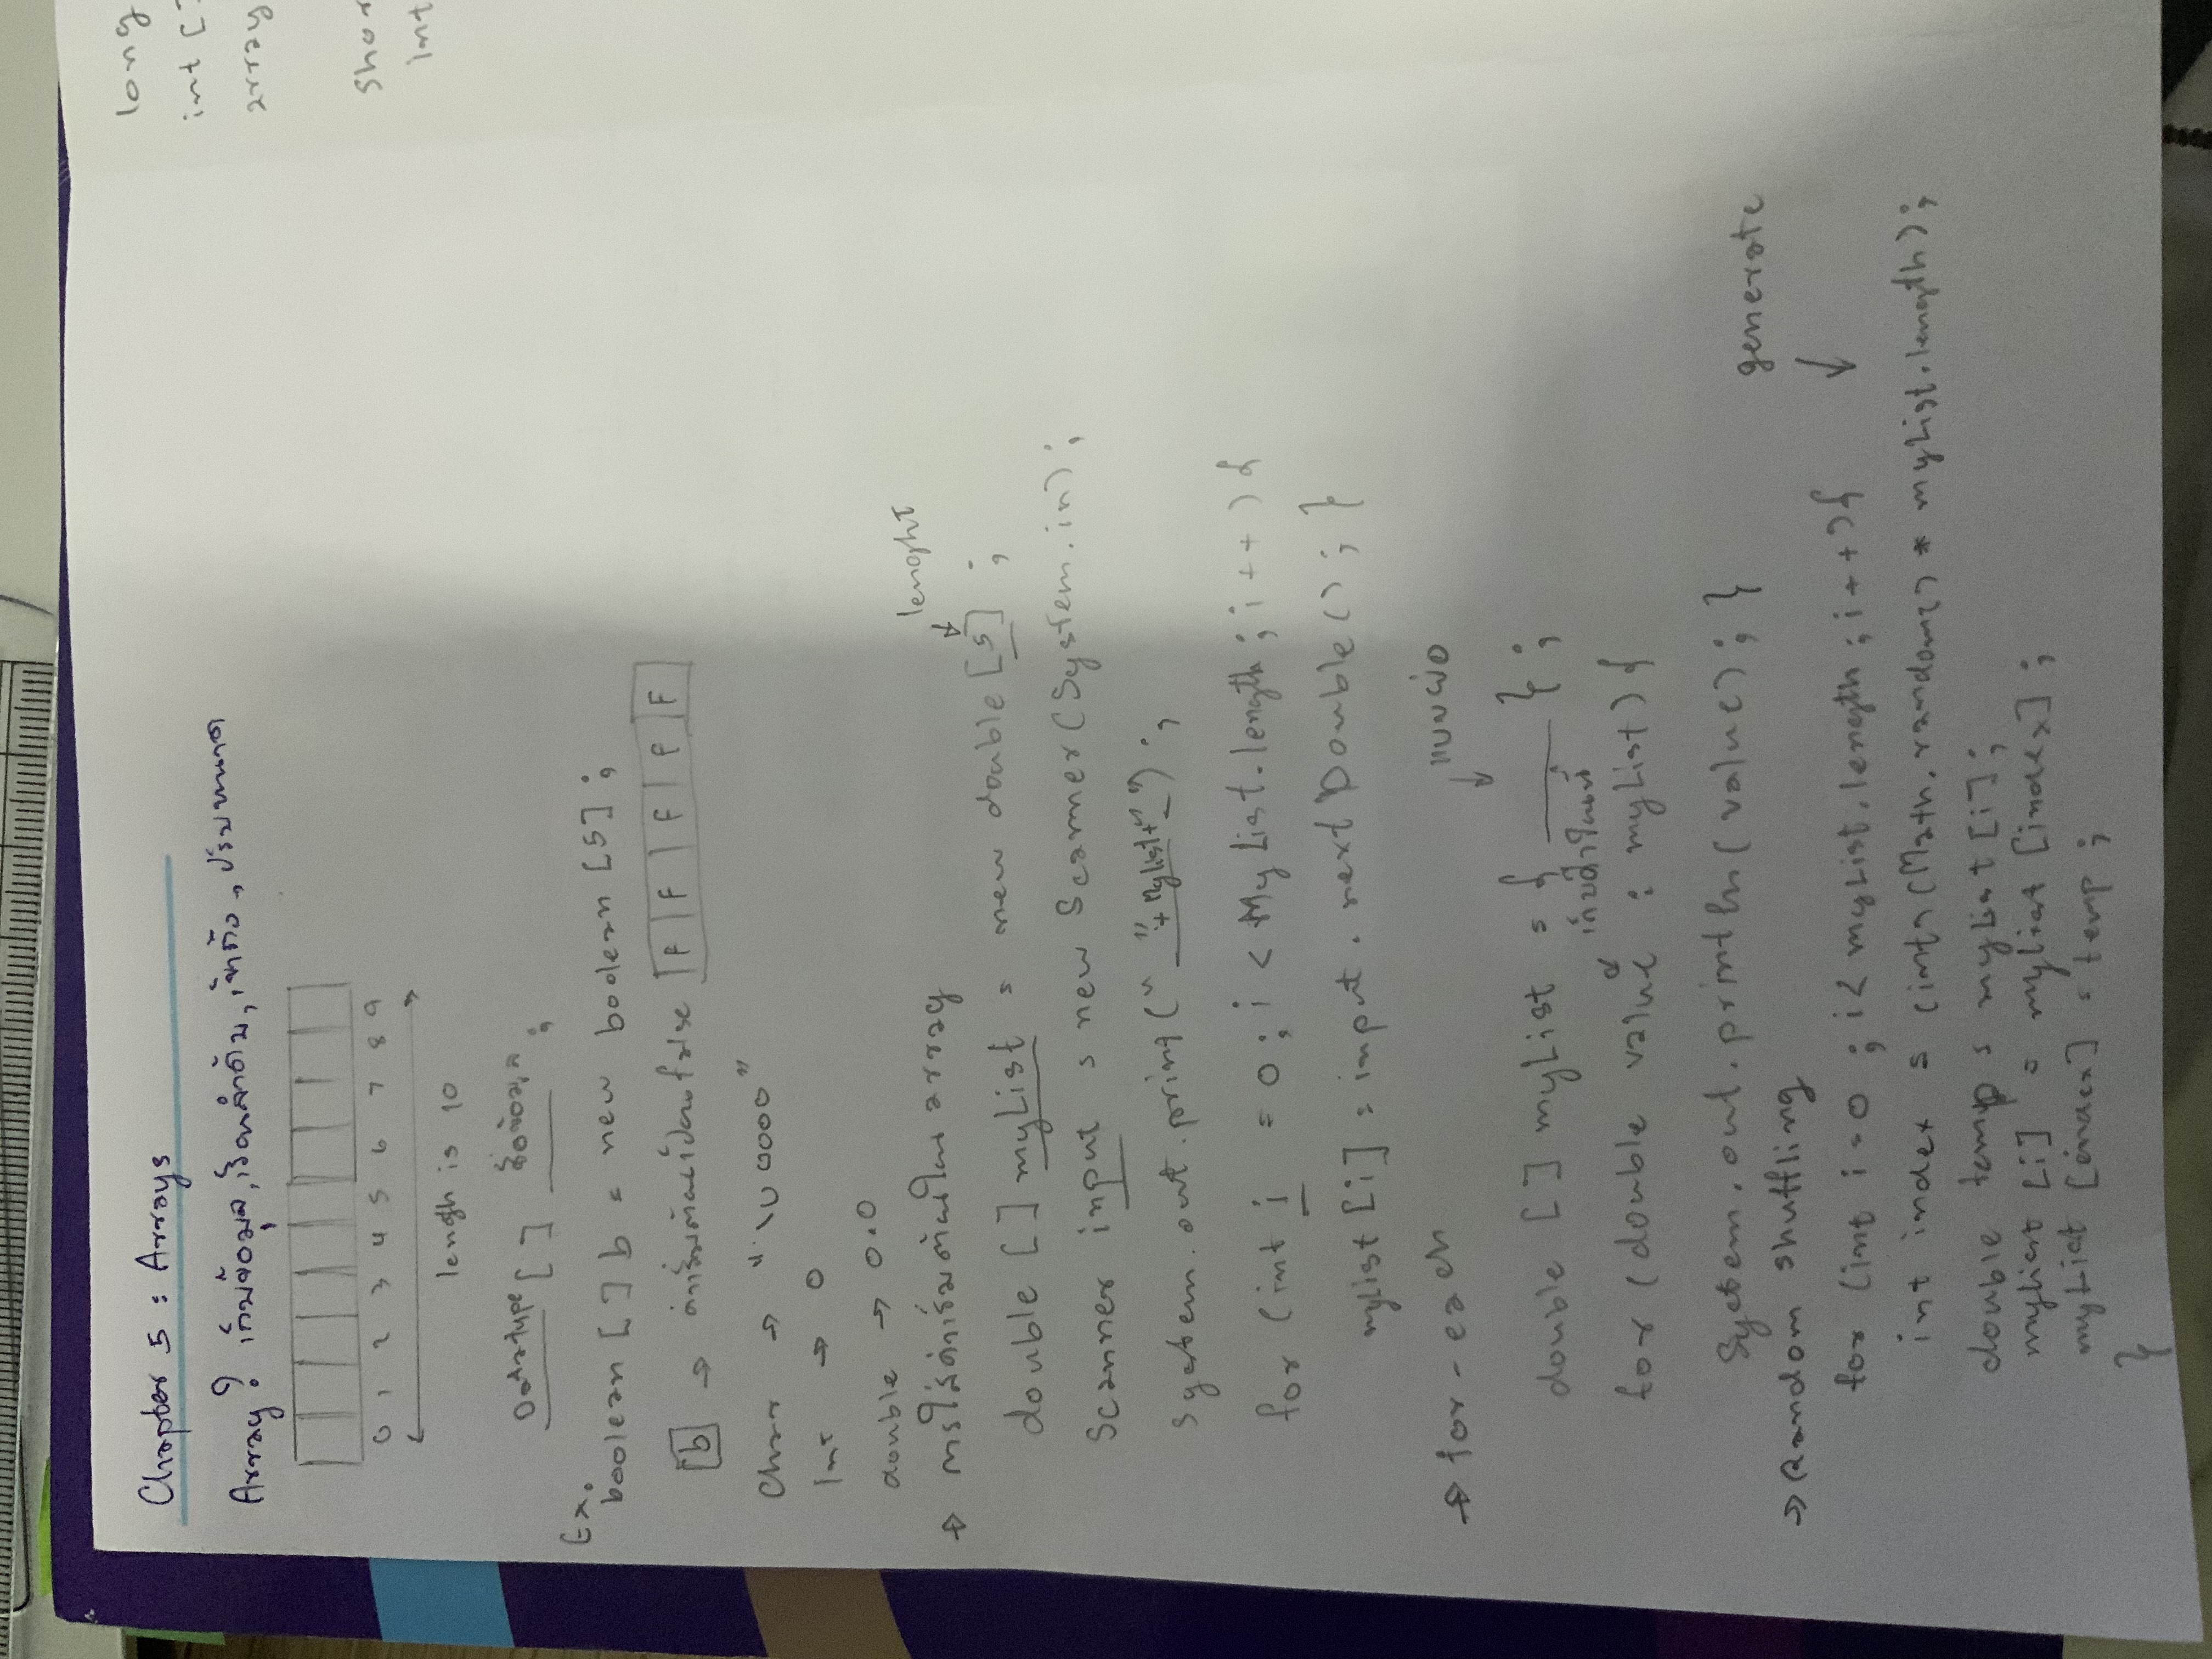 Chapter 5 : Arrays
Array? เก็บข้อมูล, เรียงลำดับ, เข้าถึง, ปรับขนาด
0 1 2 3 4 5 6 7 8 9
length is 10
Datatype [ ] ชื่อข้อมูล ;
Ex.
boolean [ ] b = new boolean [5] ;
b → ค่าเริ่มต้นเป็น false F F F F F
Char → "\u0000"
Int → 0
double → 0.0
→ การใส่ค่าเริ่มต้นใน array
lenght
double [ ] myList = new double [5] ;
Scanner input = new Scanner (System.in) ;
System.out.print (" "+Mylist+" ") ;
for (int i = 0 ; i < MyList.length ; i ++ ) {
mylist [i] = input . next Double () ; }
→ for - each
แบบย่อ
double [ ] myList = { } ;
เก็บค่าในนี้
for (double value : myList) {
System.out.println (value) ; }
generate
→ Random shuffling
for (int i = 0 ; i < myList.length ; i ++ ) {
int index = (int) (Math.random() * myList.length) ;
double temp = myList [i] ;
mylist [i] = mylist [index] ;
myList [index] = temp ;
}
long
int [ ]
array